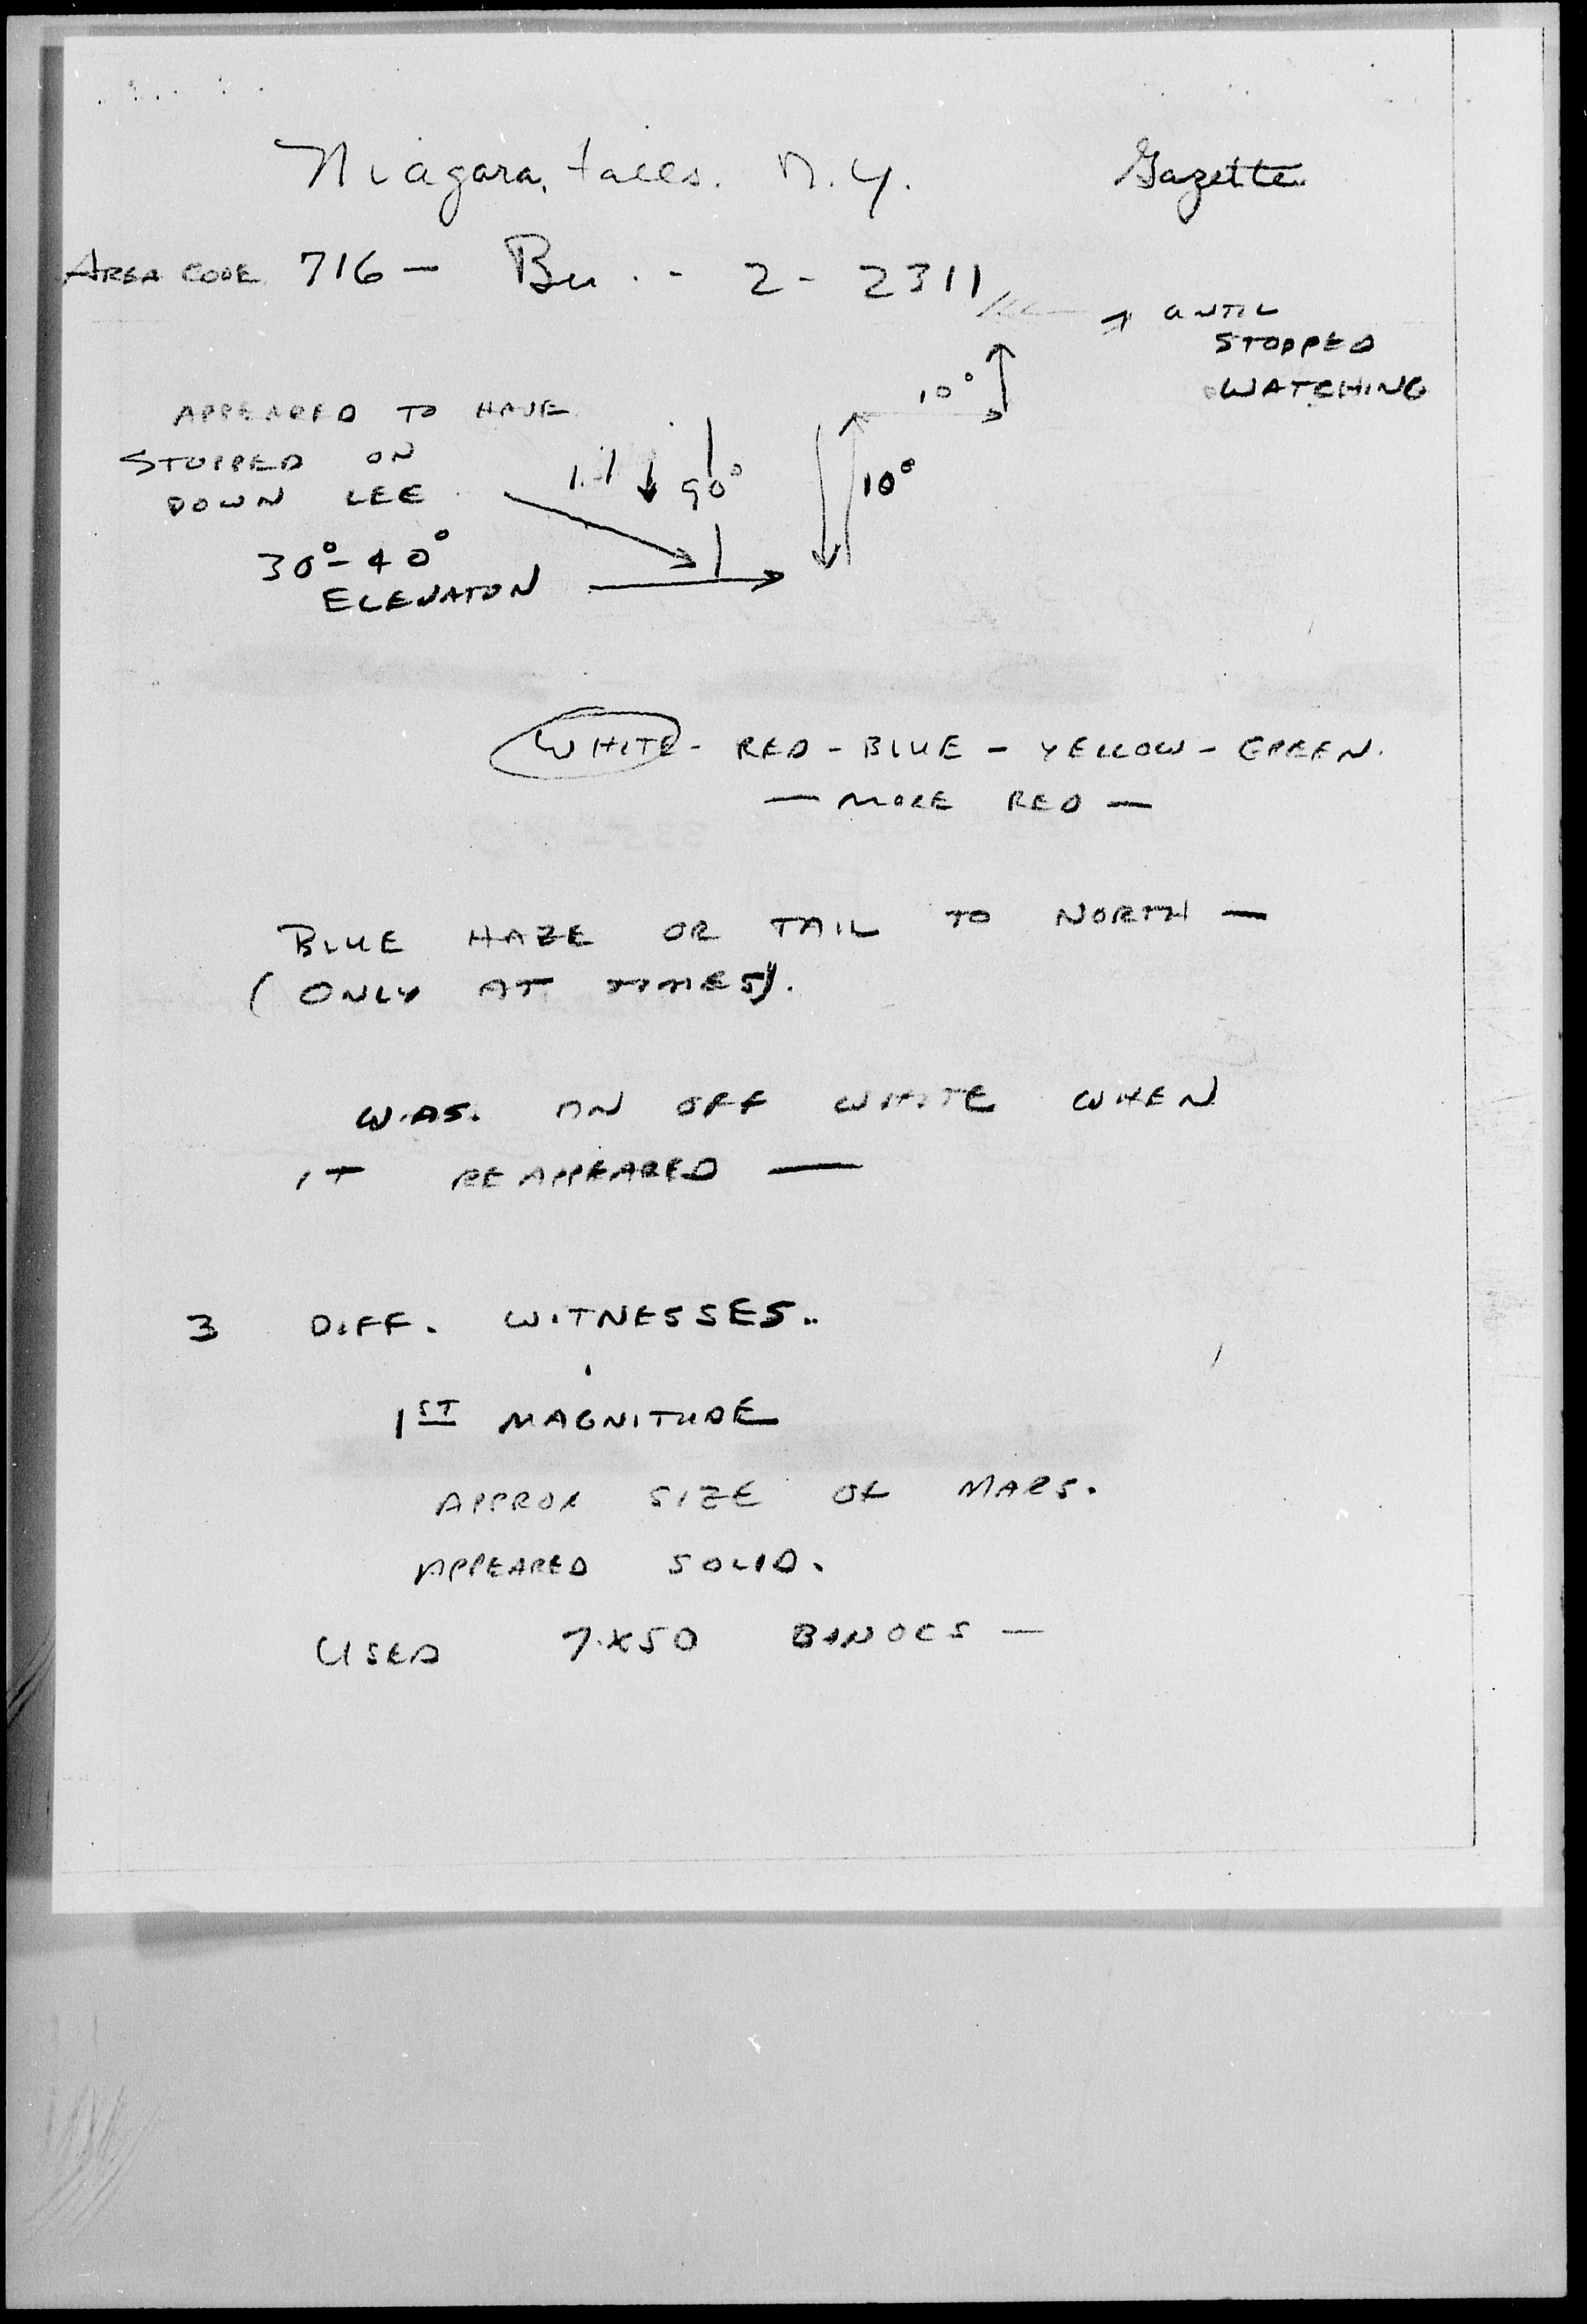 Niagara, Falls. N.Y. Gazette
AREA CODE 716 - Bu. - 2 - 2311
UNTIL
STOPPED
WATCHING
10°
APPEARED TO HAVE
STOPPED ON
DOWN LEG
90°
10°
30° - 40°
ELEVATON
WHITE - RED - BLUE - YELLOW - GREEN.
— MORE RED —
BLUE HAZE OR TAIL TO NORTH —
(ONLY AT TIMES).
WAS. AN OFF WHITE WHEN
IT REAPPEARED —
3 DIFF. WITNESSES..
1ST MAGNITUDE
APPROX SIZE OF MARS.
APPEARED SOLID.
USED 7X50 BINOCS —